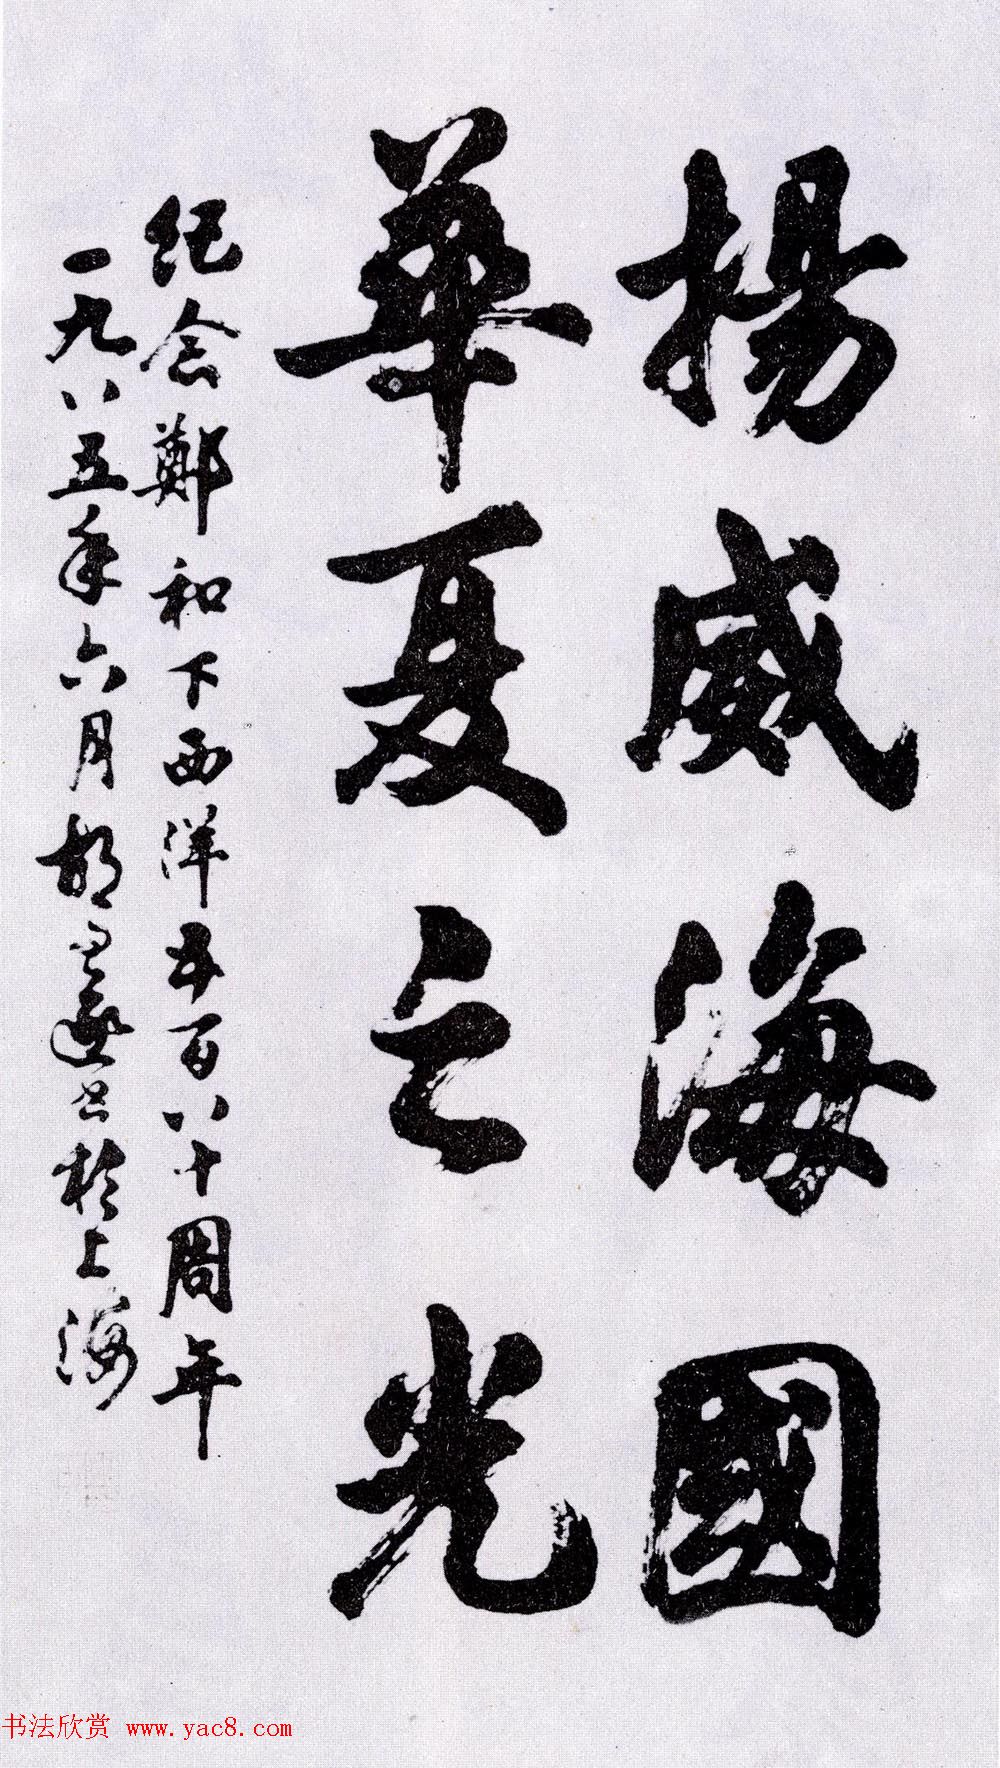 揚威海國
華夏之光
纪念鄭和下西洋五百八十周年
一九八五年六月胡問遂书於上海
书法欣赏 www.yac8.com